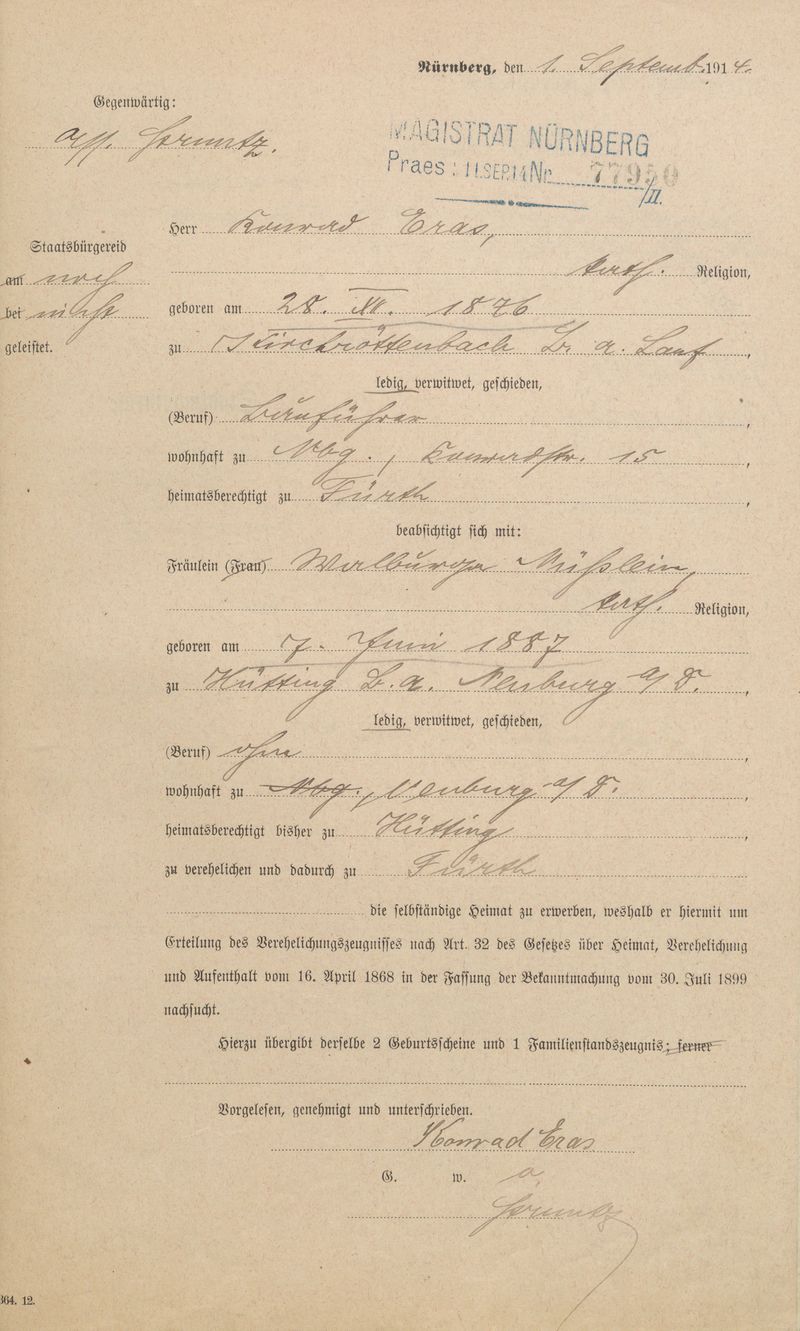 Nürnberg, den 1. Septemb. 1914.
Gegenwärtig:
MAGISTRAT NÜRNBERG
Praes: 11.SEP.14 Nr. 77950
/II.
Herr Konrad Eras,
Staatsbürgereid
kath. Religion,
am noch
geboren am 28. XI. 1876
bei nicht
geleistet.
zu Kirchröttenbach B. a. Lauf,
ledig, verwitwet, geschieden,
(Beruf) Bauführer,
wohnhaft zu Nbg., Konradstr. 15,
heimatsberechtigt zu Fürth,
beabsichtigt sich mit:
Fräulein (Frau) Walburga Müßlein,
kath. Religion,
geboren am 7. Juni 1887
zu Hütting B. a. Neuburg a/D.,
ledig, verwitwet, geschieden,
(Beruf) ohne,
wohnhaft zu Nbg., Neuburg a/D.,
heimatsberechtigt bisher zu Hütting,
zu verehelichen und dadurch zu Fürth
die selbständige Heimat zu erwerben, weshalb er hiermit um
Erteilung des Verehelichungszeugnisses nach Art. 32 des Gesetzes über Heimat, Verehelichung
und Aufenthalt vom 16. April 1868 in der Fassung der Bekanntmachung vom 30. Juli 1899
nachsucht.
Hierzu übergibt derselbe 2 Geburtsscheine und 1 Familienstandszeugnis; ferner
Vorgelesen, genehmigt und unterschrieben.
Konrad Eras
G. w. o.
364. 12.